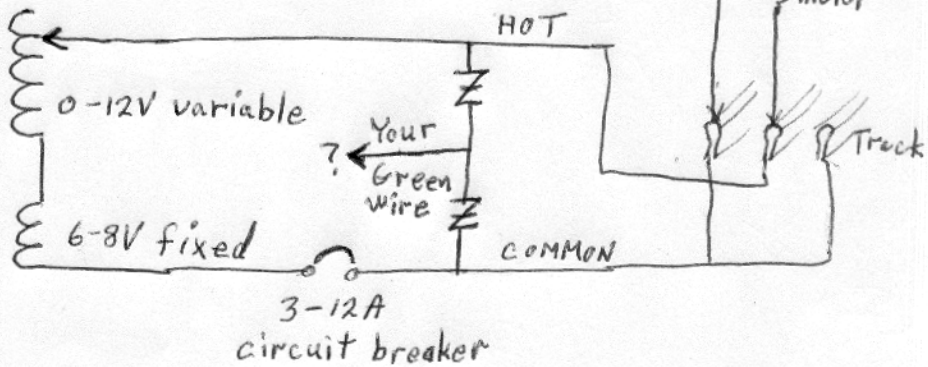 motor
HOT
0-12V variable
Your
?
Green
wire
Track
6-8V fixed
COMMON
3-12A
circuit breaker